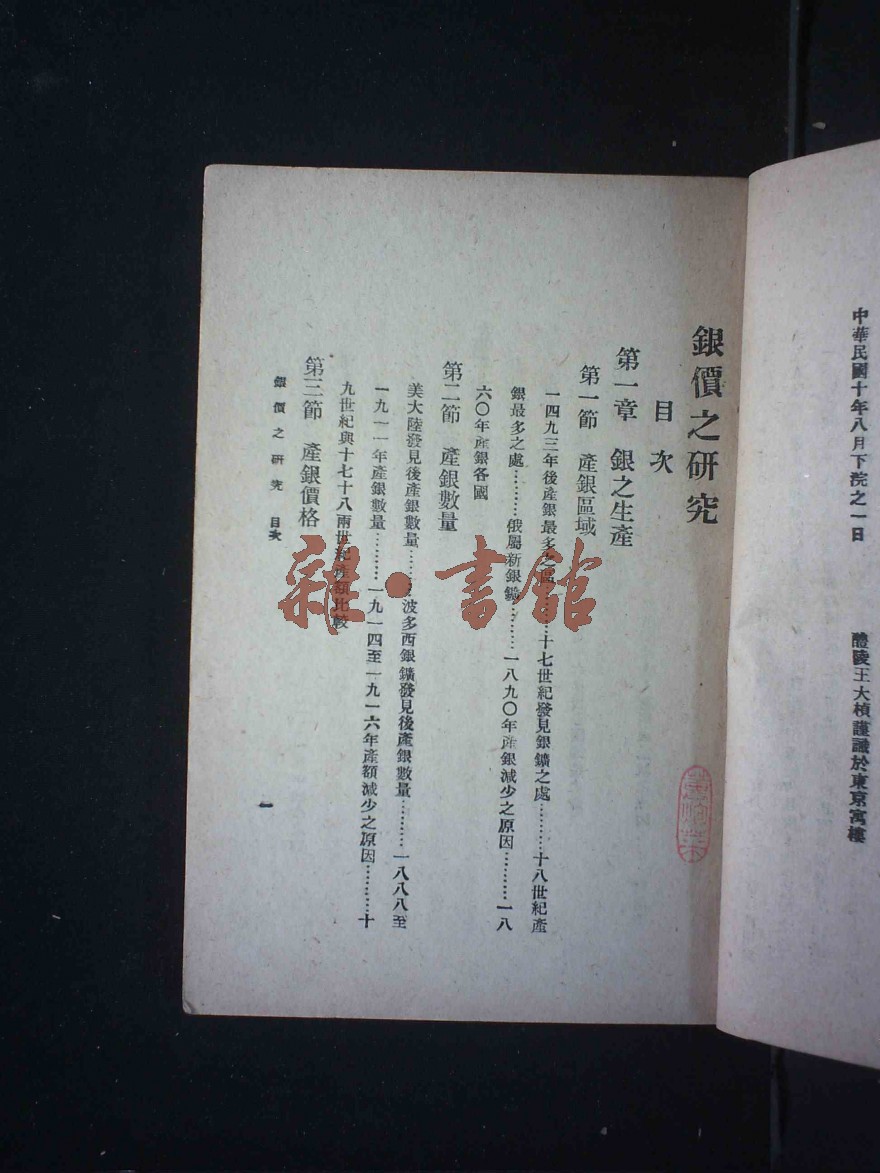 中華民國十年八月下浣之一日　醴陵王大楨謹識於東京寓樓
銀價之研究
目次
第一章　銀之生產
第一節　產銀區域
一四九三年後產銀最多之區………十七世紀發見銀鑛之處………十八世紀產
銀最多之處………俄屬新銀鑛………一八九〇年產銀減少之原因………一八
六〇年產銀各國
第二節　產銀數量
美大陸發見後產銀數量………波多西銀鑛發見後產銀數量………一八八八至
一九一一年產銀數量………一九一四至一九一六年產額減少之原因………十
九世紀與十七十八兩世紀產額比較
第三節　產銀價格
銀價之研究　目次
一
雜·書館